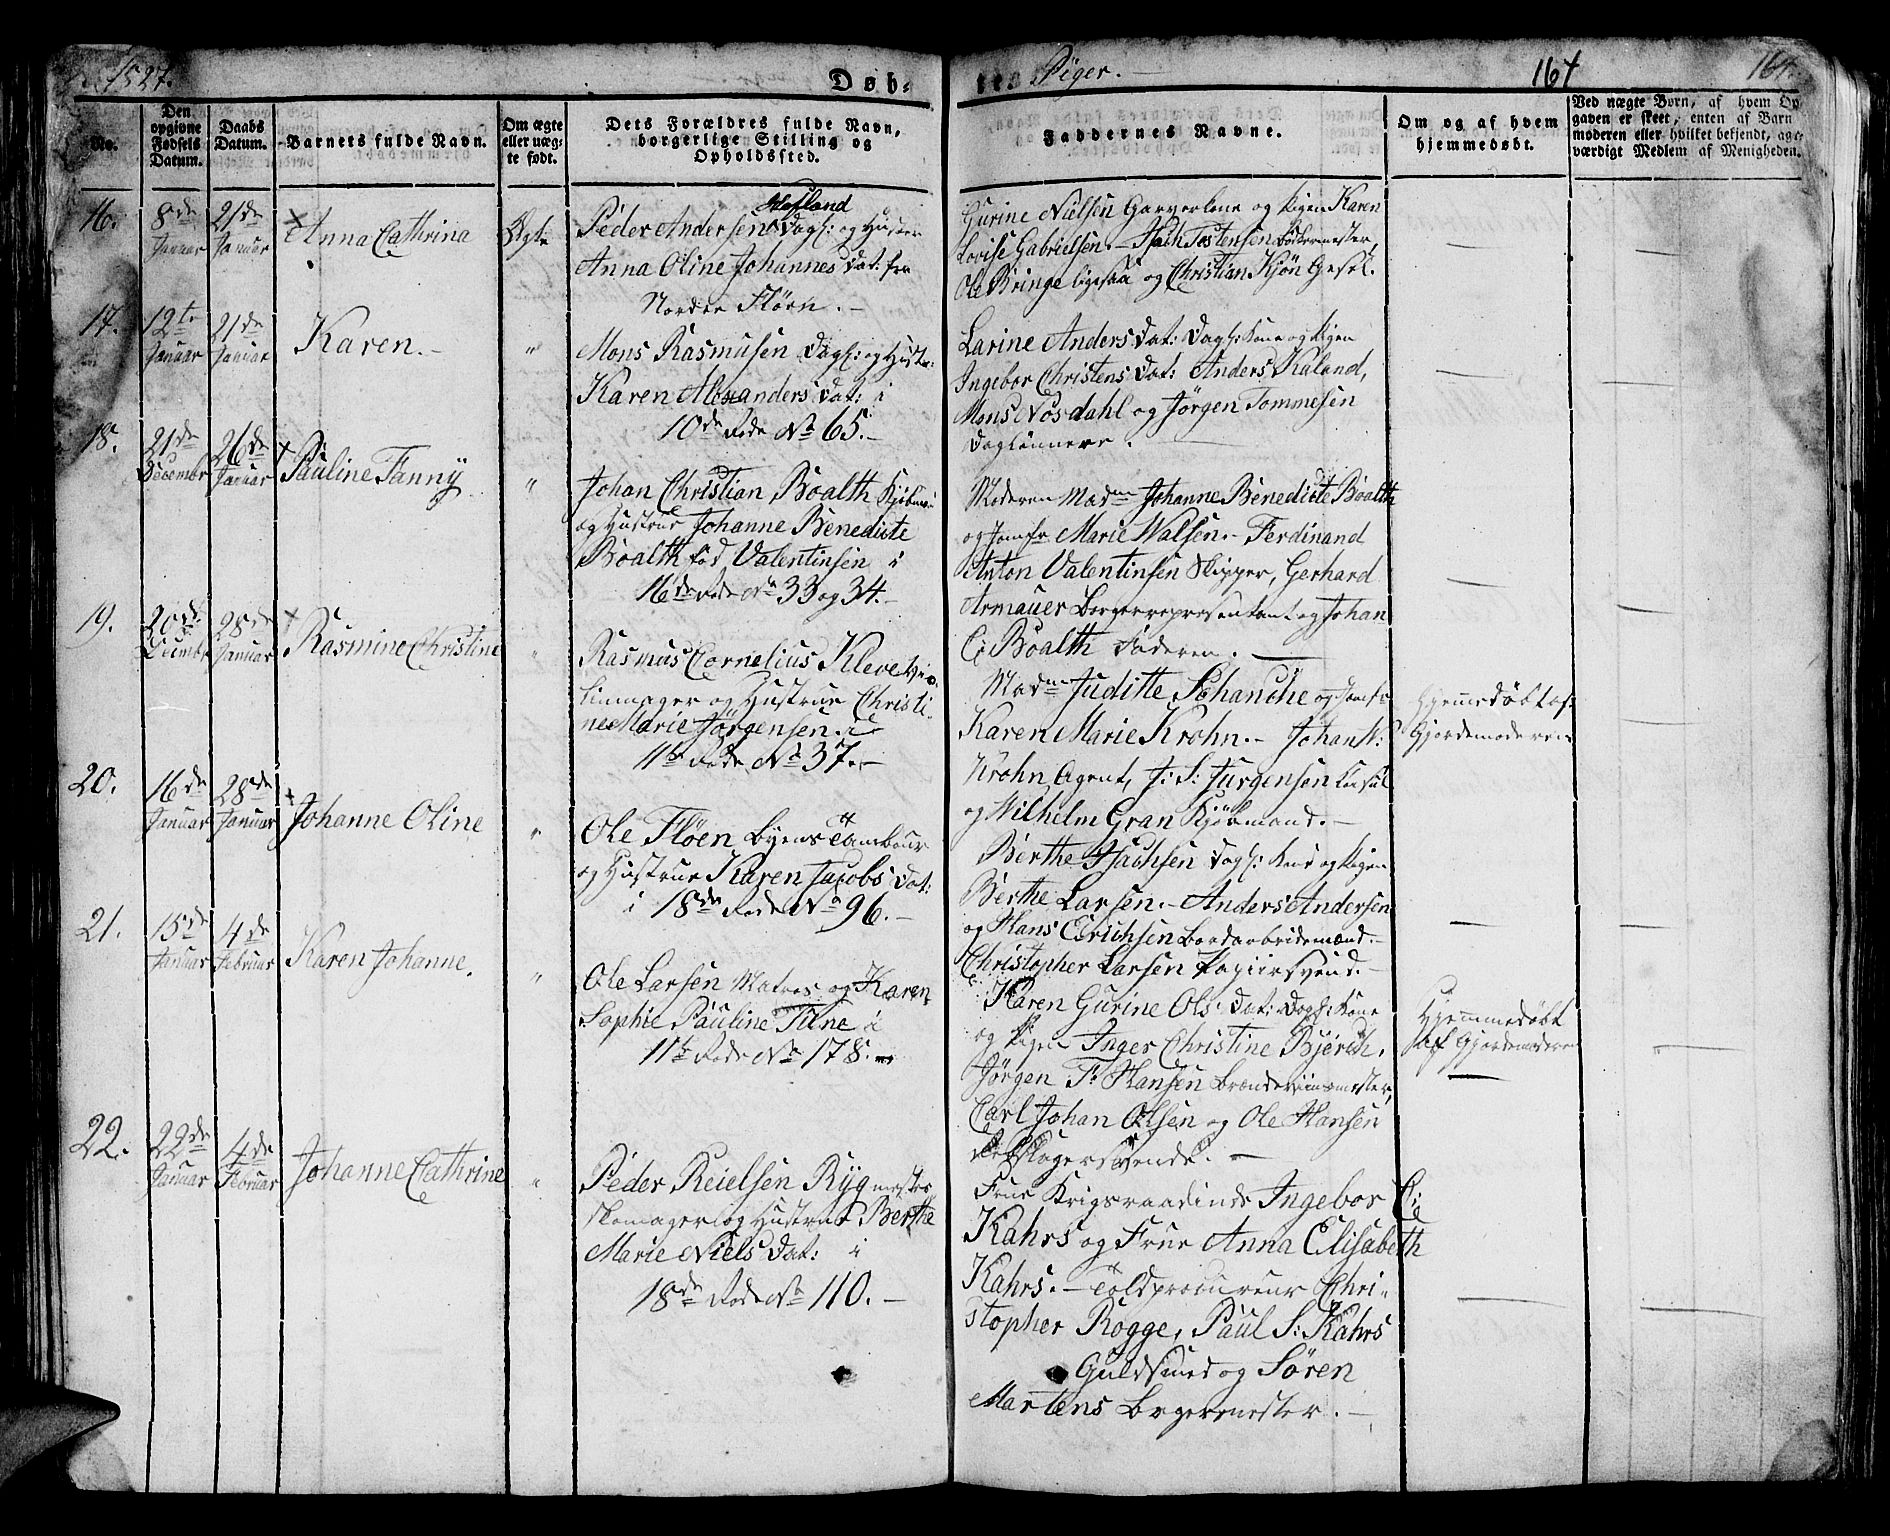 1827.
Døb-
te
Piger.
164
164.
No.
Den opgivne Fødsels Datum.
Daabs Datum.
Barnets fulde Navn.
Om ægte eller uægte født.
Dets Forældres fulde Navn, borgerlige Stilling og Opholdssted.
Faddernes Navne.
Om og af hvem hjemmedøbt.
Ved uægte Børn, af hvem Opgaven er skeet, enten af Barnmoderen eller hvilket bekjendt, agtværdigt Medlem af Menigheden.
16.
8de Januar
21de Januar
Anna Cathrina
Ægte
Peder Andersen Dagl: og Hustru
Anna Oline Johannes Dat: fra
Nordre Fløen.
Gurine Nielsen Garverkone og Pigen Karen
Lovise Gabrielsen. - Isach Tostensen Bødkermester,
Ole Bringe ligesaa og Christian Kjøn Gesel.
17.
12te Januar
21de Januar
Karen.
"
Mons Rasmusen Dagl: og Hustr:
Karen Alexanders Dat: i
10de Rode No 65.
Larine Anders Dat: Dagl: Kone og Pigen
Ingebor Christens Dat: Anders Kaland,
Mons Nosdahl og Jørgen Tommesen
Daglønnere.
18.
21de December
26de Januar
Pauline Fanny
"
Johan Christian Boalth Kjøbm:
og Hustrue Johanne Benedicte
Boalth fød Valentinsen i
16de Rode No 33 og 34.
Moderen Madme Johanne Benedicte Boalth
og Jomfr Marie Walsen. - Ferdinand
Anton Valentinsen Skipper, Gerhard
Armauer Borgerrepresentant og Johan
C: Boalth Faderen.
19.
20de Decembr
28de Januar
Rasmine Christine
"
Rasmus Cornelius Kleve Vio-
linmager og Hustrue Christi-
ne Marie Jørgensen. i
11te Rode No 37.
Madme Juditte Schanche og Jomfr
Karen Marie Krohn. - Johan N:
Krohn Agent, J: S: Jurgensen Consul
og Wilhelm Gran Kjøbmand.
Hjemmedøbt af
Gjordemoderen
20.
16de Januar
28de Januar
Johanne Oline
"
Ole Fløen Byens Tambour
og Hustrue Karen Jacobs Dat:
i 18de Rode No 96.
Berthe Isachsen Dagl: Kone og Pigen
Berthe Larsen. - Anders Andersen
og Hans Erichsen Bordarbeidsmænd.
Christopher Larsen Papiirsvend.
21.
15de Januar
4de Februar
Karen Johanne.
"
Ole Larsen Matros og Karen
Sophie Pauline Tilne i
11te Rode No 178.
Karen Gurine Ols Dat: Dagl: Kone
og Pigen Inger Christine Bjerch.
Jørgen F: Hansen Brændeviinsmester,
Carl Johan Olsen og Ole Hansen
Hjemmedøbt
af Gjordemoderen
22.
22de Januar
4de Februar
Johanne Cathrine
"
Peder Reielsen Ryg mester
Skomager og Hustrue Berthe
Marie Niels Dat: i
18de Rode No 110.
Frue Krigsraadinde Ingebor C:
Kahrs og Frue Anna Elisabeth
Kahrs. - Toldprocureur Chri-
stopher Rogge, Paul S: Kahrs
Guldsmed og Søren
Martens Bagermester.